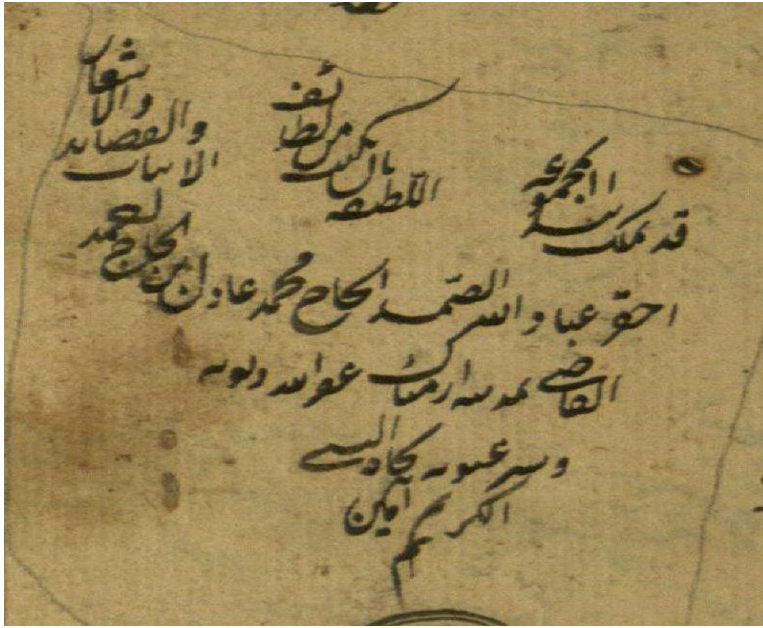 قد تملك هذه المجموعة اللطيفة من لطائف والقصايد الابيات والاشعار
احقر عباد الله الصمد الحاج محمد عادل ابن الحاج احمد
القاضي بمدينة ازمناك عفى الله ذنوبه
وستر عيوبه بجاه النبي
الكريم امين
م